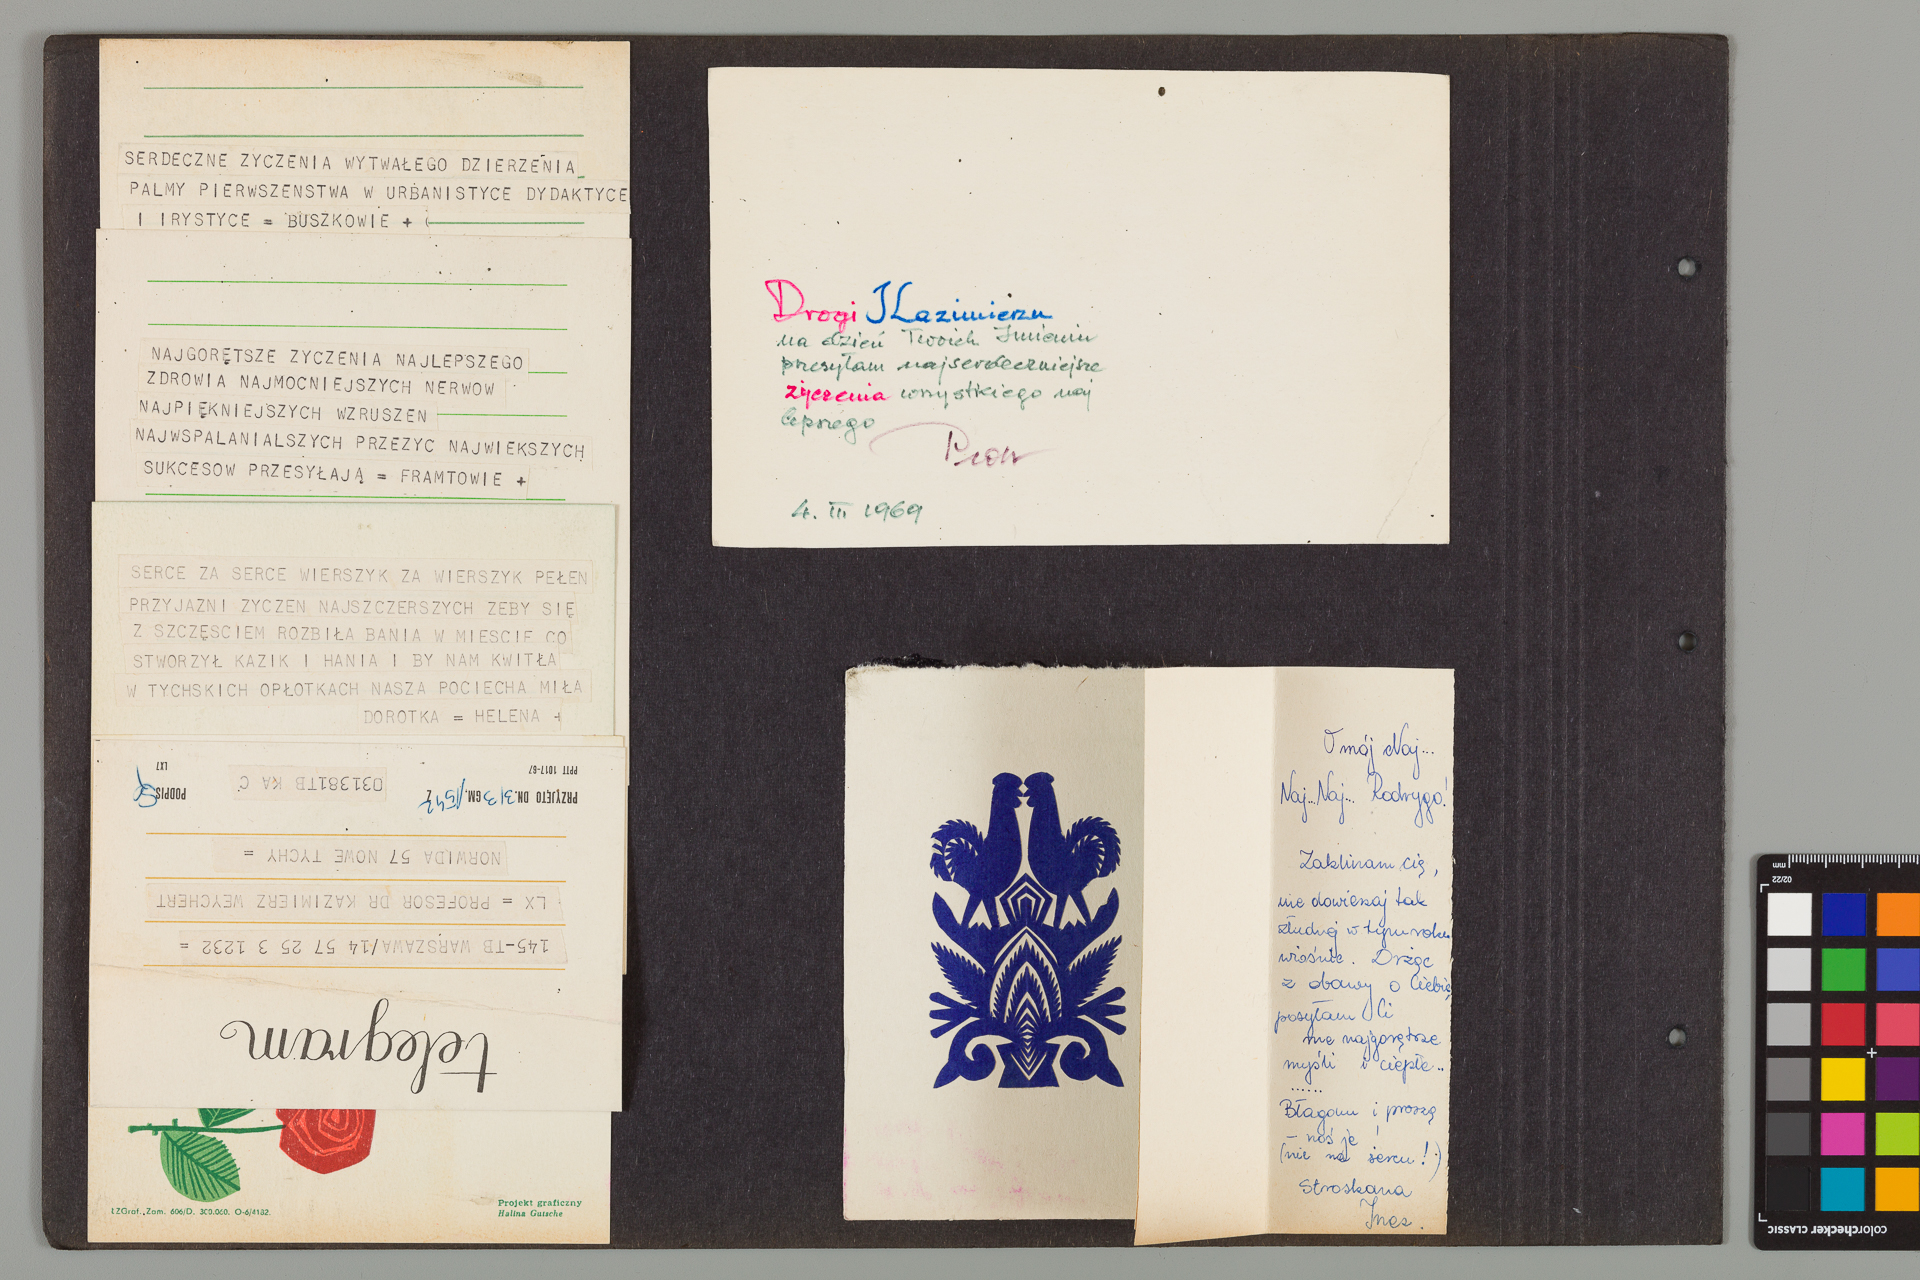 SERDECZNE ZYCZENIA WYTWAŁEGO DZIERZENIA
PALMY PIERWSZENSTWA W URBANISTYCE DYDAKTYCE
I IRYSTYCE = BUSZKOWIE +
NAJGORĘTSZE ZYCZENIA NAJLEPSZEGO
ZDROWIA NAJMOCNIEJSZYCH NERWOW
NAJPIĘKNIEJSZYCH WZRUSZEN
NAJWSPALANIALSZYCH PRZEZYC NAJWIEKSZYCH
SUKCESOW PRZESYŁAJĄ = FRAMTOWIE +
SERCE ZA SERCE WIERSZYK ZA WIERSZYK PEŁEN
PRZYJAZNI ZYCZEN NAJSZCZERSZYCH ZEBY SIĘ
Z SZCZĘSCIEM ROZBIŁA BANIA W MIESCIE CO
STWORZYŁ KAZIK I HANIA I BY NAM KWITŁA
W TYCHSKICH OPŁOTKACH NASZA POCIECHA MIŁA
DOROTKA = HELENA +
telegram
145-TB WARSZAWA/14 57 25 3 1232 =
LX = PROFESOR DR KAZIMIERZ WEYCHERT
NORWIDA 57 NOWE TYCHY =
PRZYJĘTO DN. 3/3 GM. 1542 Z 031381TB KA C PODPIS
PPTT 1017-67 LX7
ŁZGraf. Zam. 606/D. 300.000. O-6/4132.
Projekt graficzny
Halina Gutsche
Drogi Kazimierzu
na dzień Twoich Imienin
przesyłam najserdeczniejsze
życzenia wszystkiego naj
lepszego
Piotr
4. III 1969
O mój Naj...
Naj... Naj... Rodrygo!
Zaklinam cię,
nie dowierzaj tak
złudnej w tym roku
wiośnie. Drżąc
z obawy o Ciebie
posyłam Ci
me najgorętsze
myśli i ciepłe..
......
Błagam i proszę
– noś je !
(nie na sercu! :)
Stroskana
Inez.
02/22
mm
colorchecker CLASSIC